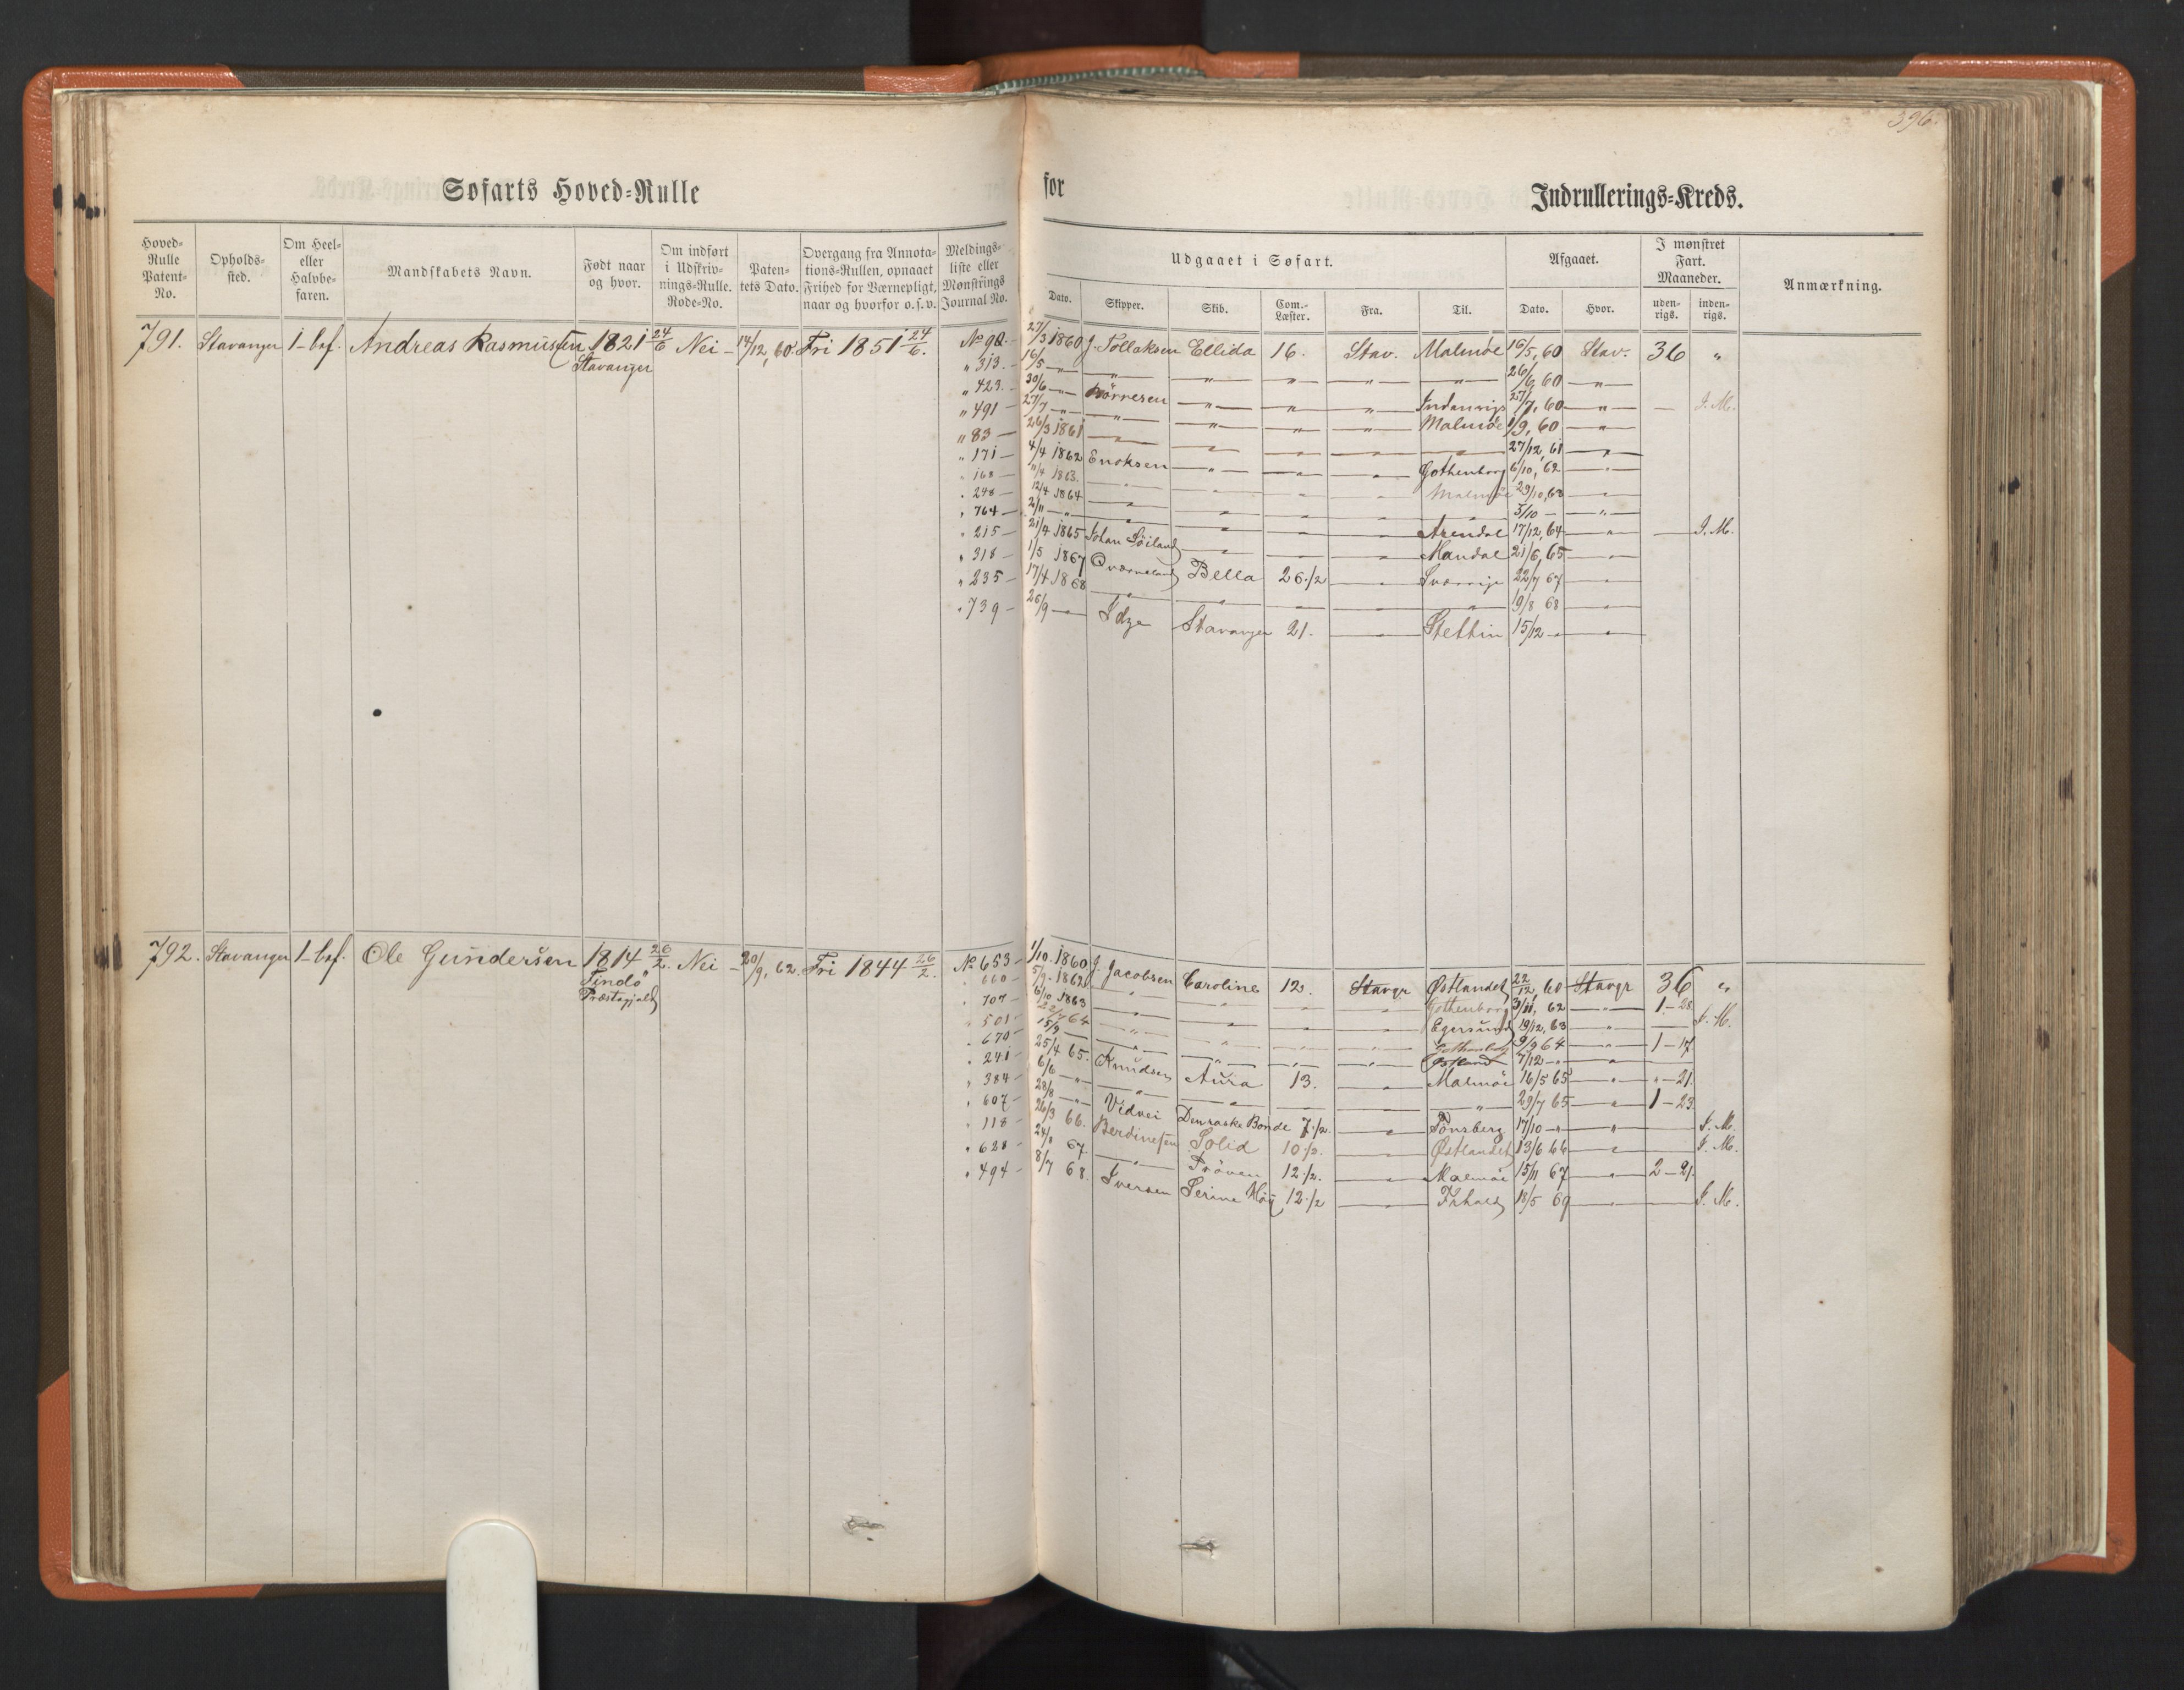 396.
Søfarts Hoved=Rulle
for
Indrullerings=Kreds.
Hoved=Rulle Patent=No.
Opholds=sted.
Om Heel= eller Halvbe=faren.
Mandskabets Navn.
Født naar og hvor.
Om indført i Udskriv=nings=Rulle. Rode=No.
Paten=tets Dato.
Overgang fra Annota=tions=Rullen, opnaaet Frihed for Værnepligt, naar og hvorfor o.s.v.
Meldings=liste eller Mønstrings Journal No.
Udgaaet i Søfart.
Dato. Skipper. Skib. Com.=Læster. Fra. Til.
Afgaaet.
Dato. Hvor.
I mønstret Fart. Maaneder.
uden=rigs. inden=rigs.
Anmærkning.
791. Stavanger 1 - Andreas Rasmussen 1821 24/6 Nei - 14/12, 60. Fri 1851 24/6. No 90. 27/3 1860 J. Tollaksen Ellida 16. Stav. Malmöe 16/5, 60 Stav. 36 "
Stavanger
" 313. - 16/5 - " - " - " - " - " - " - 26/6, 60 - " -
" 423. - 30/6 - " - Börresen - " - " - " - Indenrigs 27/7, 60 - " - - I. M.
" 491 - 27/7 - " - " - " - " - " - Malmöe 1/9, 60 - " -
" 83 - 26/3 1861 - " - " - " - " - " - 27/12, 61 - " -
" 171 - 4/4 1862 Enoksen - " - " - " - Gothenborg 6/10, 62 - " -
" 168 - 11/4 1863. - " - " - " - " - Malmöe 29/10, 63 - " -
" 248 - 12/4 1864 - " - " - " - " - " - 3/10 - - " -
" 764 - 2/11 - " - " - " - " - " - Arendal 17/12, 64 - " - - I. M.
" 215 - 21/4 1865 Johan Söiland - " - " - " - Mandal 21/6, 65 - " -
" 318 - 1/5 1867 Qværneland Bella 26.1/2 - " - Sverrige 22/7 67 - " -
" 235 - 17/4 1868 - " - " - " - " - " - 19/8 68 - " -
" 739 - 26/9 - " - Idze Stavanger 21. - " - Stettin 15/12 - " - " -
792. Stavanger 1 - Ole Gundersen 1814 26/2. Nei - 20/9, 62. Fri 1844 26/2. No 653 - 1/10. 1860 J. Jacobsen Caroline 12. Stavgr Østlandet 22/12, 60 Stavgr 36 "
Findö
Præstegjeld
" 660 - 5/9. 1862 - " - " - " - " - Gothenborg 3/11, 62 - " - 1 - 28
" 707 - 6/10 1863 - " - " - " - " - Egersund 19/12, 63 - " - - I. M.
" 501 - 22/7 64 - " - " - " - " - Gothenborg 9/9 64 - " - 1 - 17
" 670 - 15/9 - " - " - " - " - Østland 7/12 - " - " -
" 241 - 25/4 65. Knudsen Aura 13. - " - Malmöe 16/5 65 - " - " - 21.
" 384 - 6/6 - " - " - " - " - " - " - 29/7 65 - " - 1 - 23
" 607 - 28/8 - " - Vidnei Den raske Bonde 7.1/2. - " - Tönsberg 17/10 - " - " - I. M.
" 118 - 26/3 66. Berdinesen Solid 10.1/2. - " - Østlandet 13/6 66 - " - I. M.
" 628 - 24/8 67. - " - Pröven 12.1/2. - " - Malmöe 15/11 67 - " - 2 - 21
" 494 - 8/7 68. Iversen Serine 12.1/2 - " - 18/5 69 - " - - I. M.